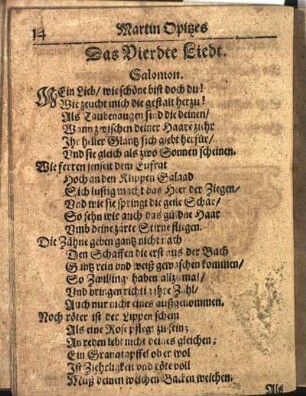 14 Martin Opitzes
Das Vierdte Liedt.
Salomon.
MEin Lieb / wie schöne bist doch du!
Wie zeucht mich die gestalt herzu!
Als Taubenaugen sind die deinen /
Wann zwischen deiner Haare zihr
Ihr heller Glantz sich giebt herfür /
Und sie gleich als zwo Sonnen scheinen.
Wie ferren jenseit dem Eufrat
Hoch an den Klippen Galaad
Sich lustig macht das Heer der Ziegen /
Und wie sie springt die geile Schar /
So sehn wie auch das güldne Haar
Umb deine zarte Stirne fliegen.
Die Zähne geben gantz nicht nach
Den Schaffen die erst aus der Bach
Gantz rein und weiß gewaschen kommen /
So Zwillinge haben allzumal /
Und bringen richtig ihre Zahl /
Auch nur nicht eines außgenommen.
Noch röter ist der Lippen schein
Als eine Rose pflegt zu sein;
An reden lebt nicht deines gleichen;
Ein Granatapffel ob er wol
Ist Zierligkeit und röte voll
Muß deinen weichen Backen weichen.
Als